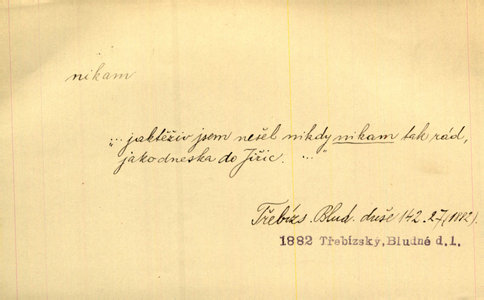 nikam
"... jaktěživ jsem nešel nikdy nikam tak rád,
jako dneska do Jiřic. ..."
Třebízs. Blud. duše 142. 27 (1882).
1882 Třebízský, Bludné d. 1.